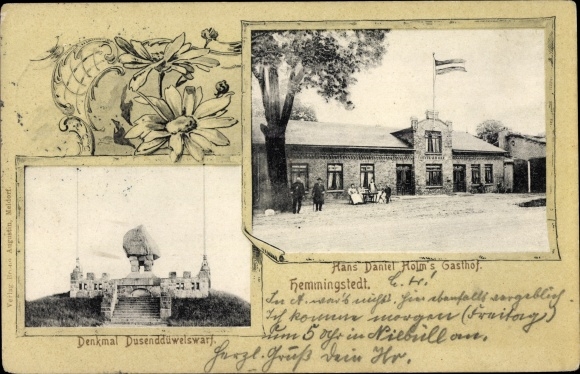 Verlag Bruno Augustin, Meldorf.
Hans Daniel Holm's Gasthof.
Hemmingstedt.
Denkmal Dusenddüwelswarf.
In A. weiß nicht. Hier ebenfalls vergeblich.
Ich komme morgen (Freitag)
um 5 Uhr in Niebüll an.
Herzl. Gruß Dein